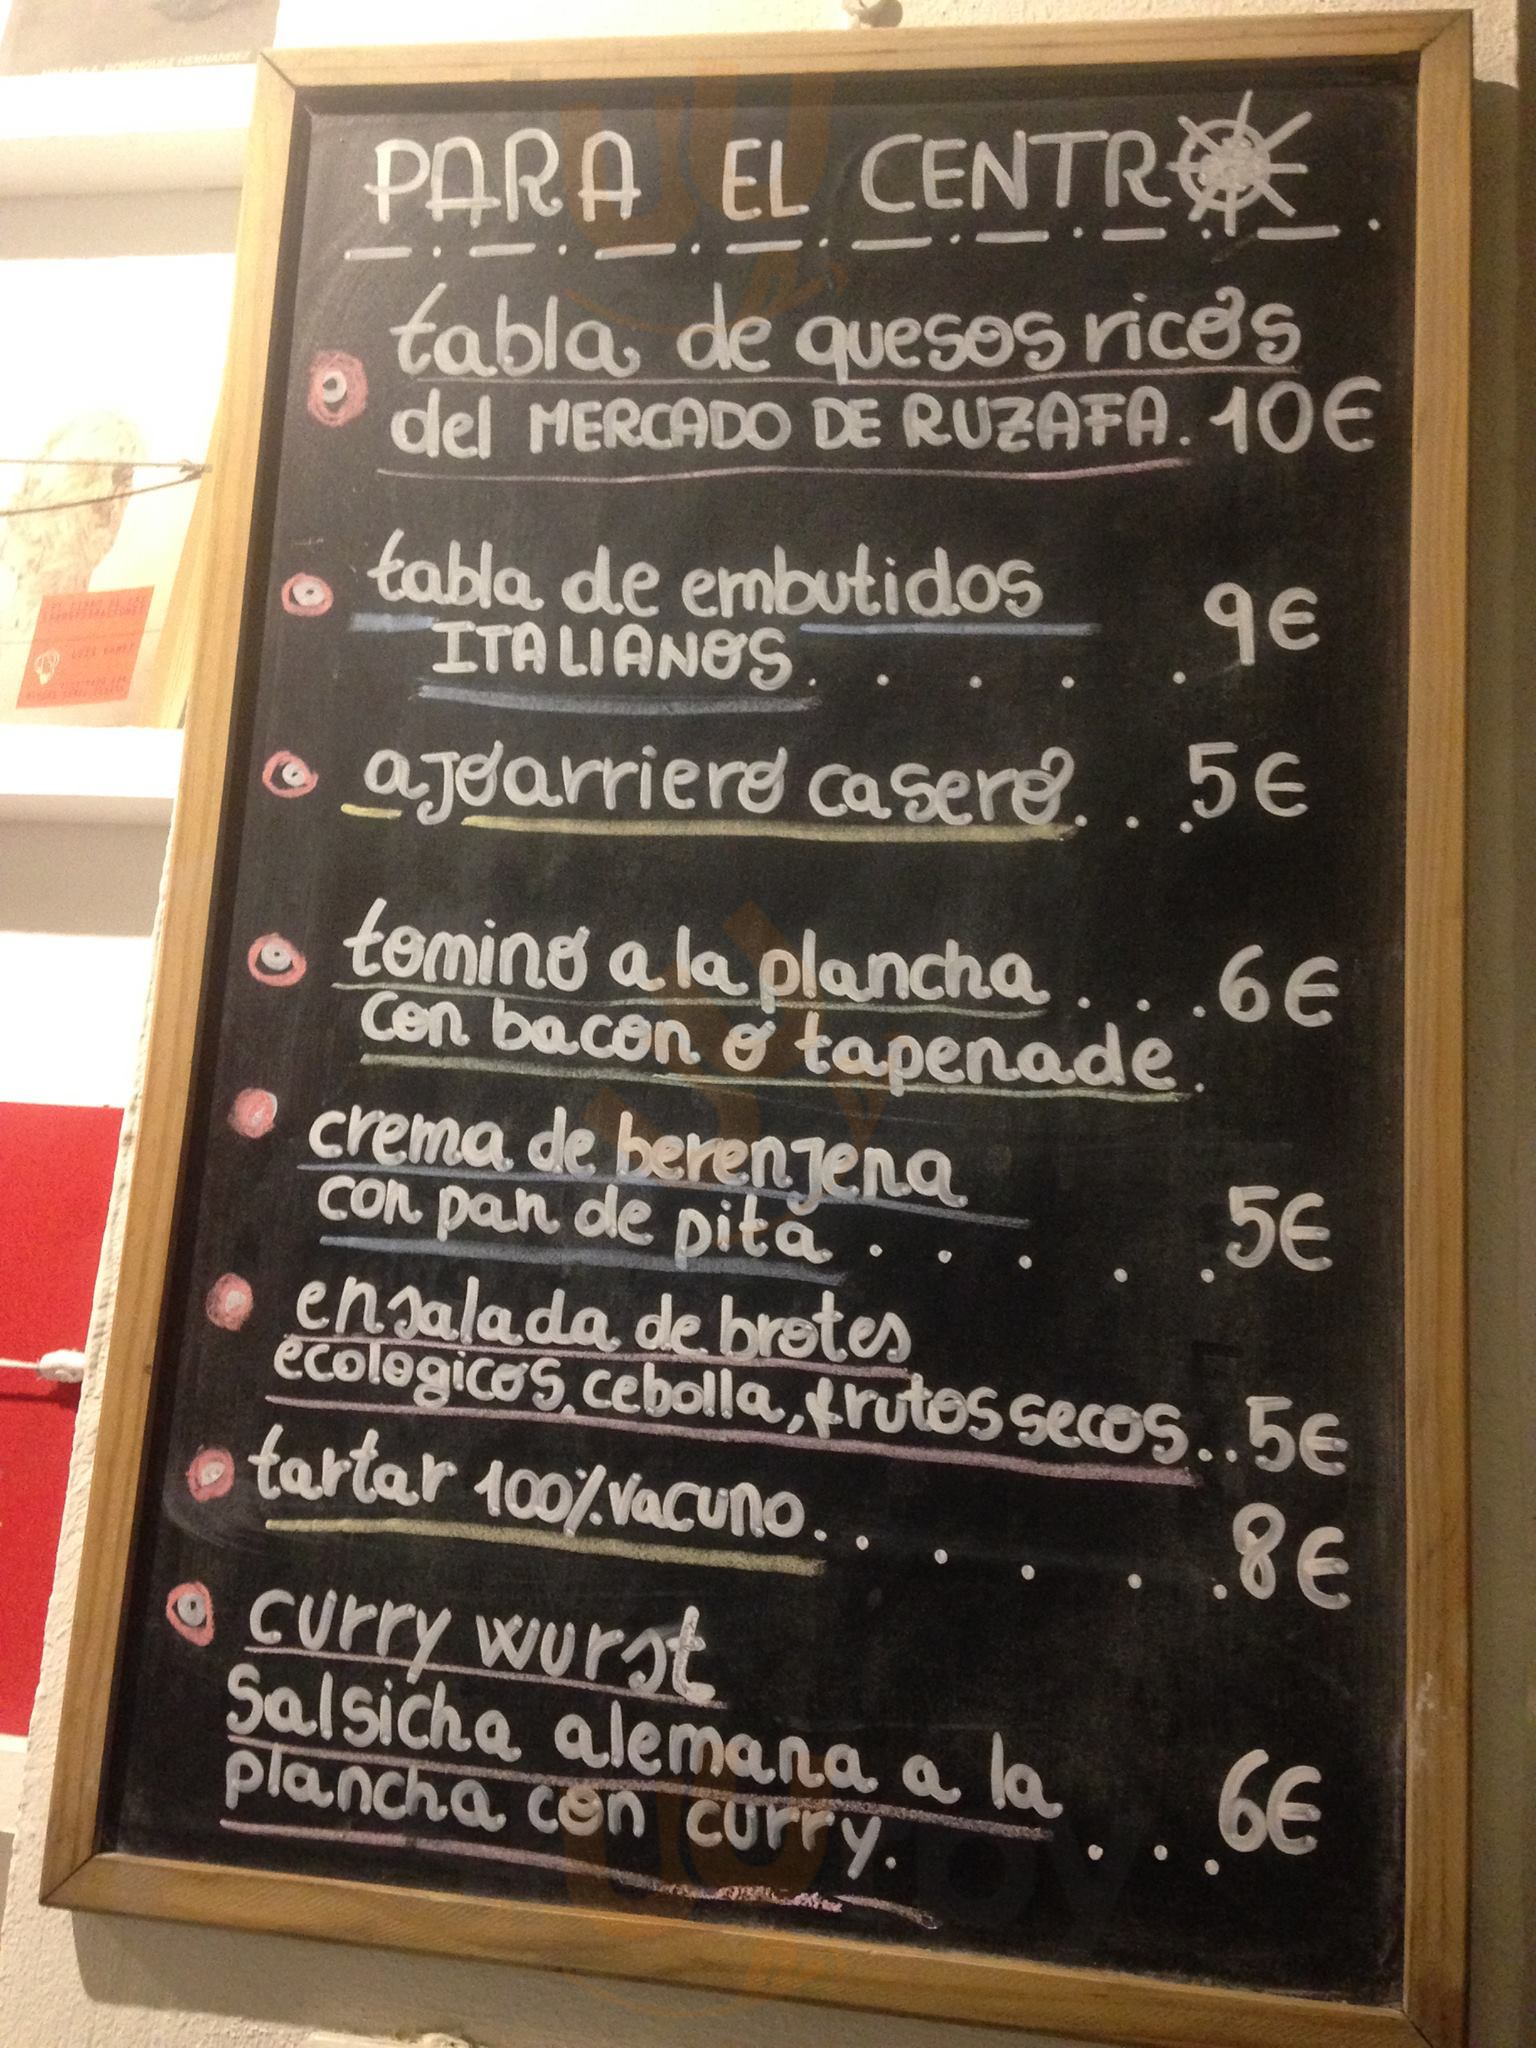 PARA EL CENTRO
tabla de quesos ricos
del MERCADO DE RUZAFA. 10€
tabla de embutidos
ITALIANOS. . . . . 9€
ajoarriero casero. . . 5€
tomino a la plancha . . . 6€
con bacon o tapenade.
crema de berenjena
con pan de pita . . . . . 5€
ensalada de brotes
ecologicos, cebolla, frutos secos.. 5€
tartar 100% vacuno. . . . . . 8€
curry wurst
Salsicha alemana a la
plancha con curry. . . . 6€